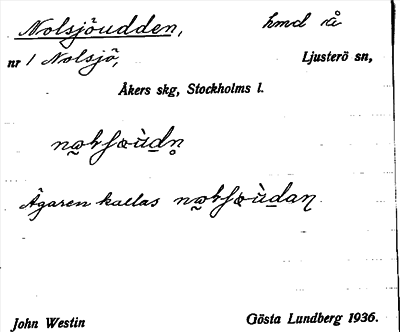 Nolsjöudden, hmd rå
nr 1 Nolsjö, Ljusterö sn,
Åkers skg, Stockholms l.
Ägaren kallas
John Westin Gösta Lundberg 1936.